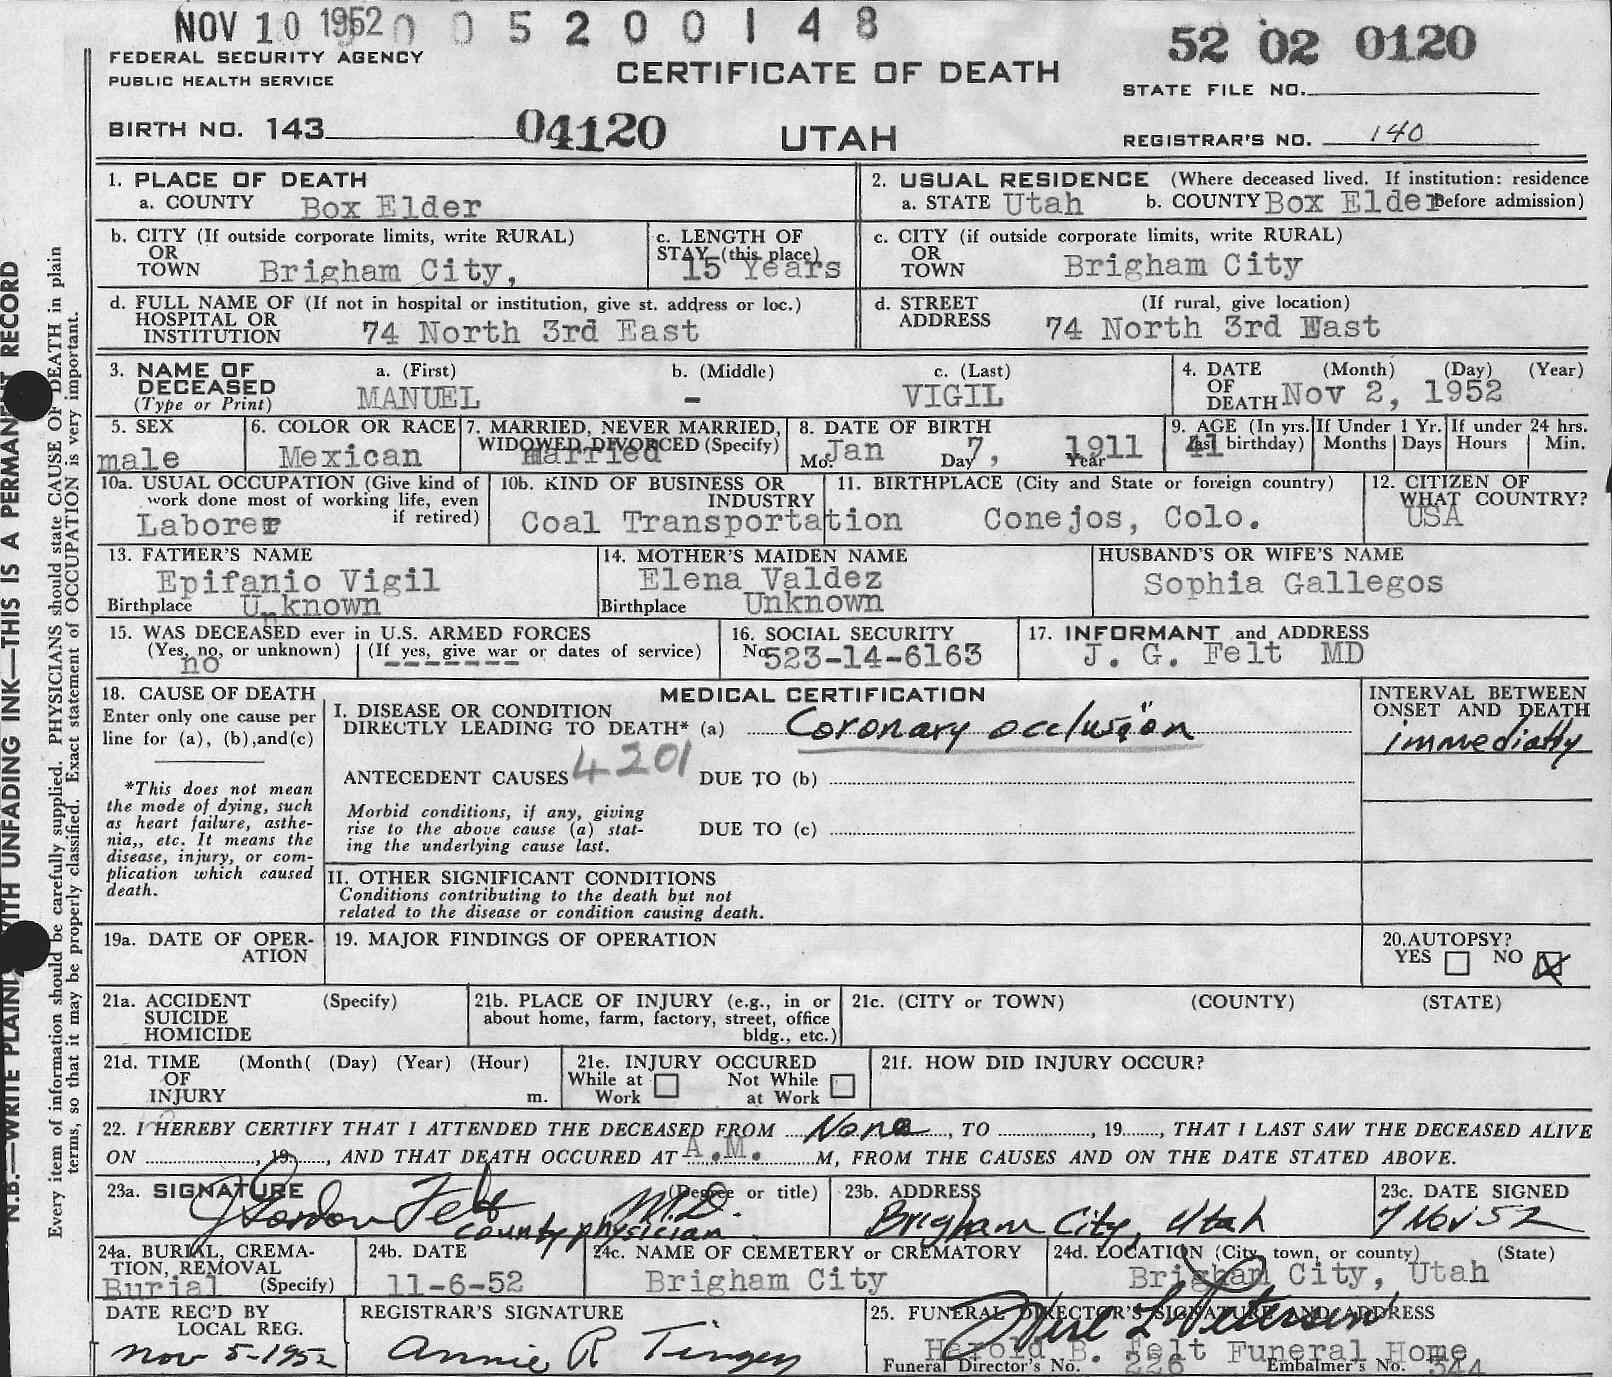 NOV 10 1952 0 0 5 2 0 0 1 4 8
52 02 0120
FEDERAL SECURITY AGENCY
PUBLIC HEALTH SERVICE
CERTIFICATE OF DEATH
STATE FILE NO.
BIRTH NO. 143 04120 UTAH REGISTRAR'S NO. 140
1. PLACE OF DEATH
a. COUNTY Box Elder
2. USUAL RESIDENCE (Where deceased lived. If institution: residence
a. STATE Utah b. COUNTY Box Elder Before admission)
b. CITY (If outside corporate limits, write RURAL)
OR
TOWN Brigham City,
c. LENGTH OF
STAY (this place)
15 Years
c. CITY (if outside corporate limits, write RURAL)
OR
TOWN Brigham City
d. FULL NAME OF (If not in hospital or institution, give st. address or loc.)
HOSPITAL OR
INSTITUTION 74 North 3rd East
d. STREET (If rural, give location)
ADDRESS 74 North 3rd East
3. NAME OF a. (First) b. (Middle) c. (Last)
DECEASED
(Type or Print) MANUEL - VIGIL
4. DATE (Month) (Day) (Year)
OF
DEATH Nov 2, 1952
5. SEX
male
6. COLOR OR RACE
Mexican
7. MARRIED, NEVER MARRIED,
WIDOWED, DIVORCED (Specify)
married
8. DATE OF BIRTH
Mo. Jan Day 7, Year 1911
9. AGE (In yrs.
last birthday)
41
If Under 1 Yr.
Months Days
If under 24 hrs.
Hours Min.
10a. USUAL OCCUPATION (Give kind of
work done most of working life, even
if retired)
Laborer
10b. KIND OF BUSINESS OR
INDUSTRY
Coal Transportation
11. BIRTHPLACE (City and State or foreign country)
Conejos, Colo.
12. CITIZEN OF
WHAT COUNTRY?
USA
13. FATHER'S NAME
Epifanio Vigil
Birthplace Unknown
14. MOTHER'S MAIDEN NAME
Elena Valdez
Birthplace Unknown
HUSBAND'S OR WIFE'S NAME
Sophia Gallegos
15. WAS DECEASED ever in U.S. ARMED FORCES
(Yes, no, or unknown) (If yes, give war or dates of service)
no -------
16. SOCIAL SECURITY
No. 523-14-6163
17. INFORMANT and ADDRESS
J. G. Felt MD
18. CAUSE OF DEATH
Enter only one cause per
line for (a), (b), and (c)
*This does not mean
the mode of dying, such
as heart failure, asthe-
nia,, etc. It means the
disease, injury, or com-
plication which caused
death.
MEDICAL CERTIFICATION
I. DISEASE OR CONDITION
DIRECTLY LEADING TO DEATH* (a) Coronary occlusion
ANTECEDENT CAUSES 4201 DUE TO (b)
Morbid conditions, if any, giving
rise to the above cause (a) stat-
ing the underlying cause last.
DUE TO (c)
II. OTHER SIGNIFICANT CONDITIONS
Conditions contributing to the death but not
related to the disease or condition causing death.
INTERVAL BETWEEN
ONSET AND DEATH
immediatly
19a. DATE OF OPER-
ATION
19. MAJOR FINDINGS OF OPERATION
20. AUTOPSY?
YES NO
21a. ACCIDENT (Specify)
SUICIDE
HOMICIDE
21b. PLACE OF INJURY (e.g., in or
about home, farm, factory, street, office
bldg., etc.)
21c. (CITY or TOWN) (COUNTY) (STATE)
21d. TIME (Month( (Day) (Year) (Hour)
OF
INJURY m.
21e. INJURY OCCURED
While at Not While
Work at Work
21f. HOW DID INJURY OCCUR?
22. I HEREBY CERTIFY THAT I ATTENDED THE DECEASED FROM None, TO , 19 , THAT I LAST SAW THE DECEASED ALIVE
ON , 19 , AND THAT DEATH OCCURED AT A.M. M, FROM THE CAUSES AND ON THE DATE STATED ABOVE.
23a. SIGNATURE (Degree or title)
J Gordon Felt M.D.
county physician
23b. ADDRESS
Brigham City, Utah
23c. DATE SIGNED
7 Nov 52
24a. BURIAL, CREMA-
TION, REMOVAL
Burial (Specify)
24b. DATE
11-6-52
24c. NAME OF CEMETERY or CREMATORY
Brigham City
24d. LOCATION (City, town, or county) (State)
Brigham City, Utah
DATE REC'D BY
LOCAL REG.
Nov 5-1952
REGISTRAR'S SIGNATURE
Annie R Tingey
25. FUNERAL DIRECTOR'S SIGNATURE AND ADDRESS
L Petersen
Harold B. Felt Funeral Home
Funeral Director's No. 226 Embalmer's No. 344
N.B.—WRITE PLAINLY WITH UNFADING INK—THIS IS A PERMANENT RECORD
Every item of information should be carefully supplied. PHYSICIANS should state CAUSE OF DEATH in plain
terms, so that it may be properly classified. Exact statement of OCCUPATION is very important.